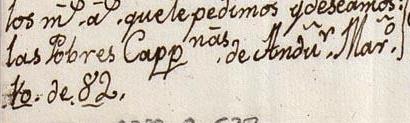 los m.^s a.^s que le pedimos y deseamos:
las Pobres Capp^nas. de Andu^r. Mar^o.
10. de 82.